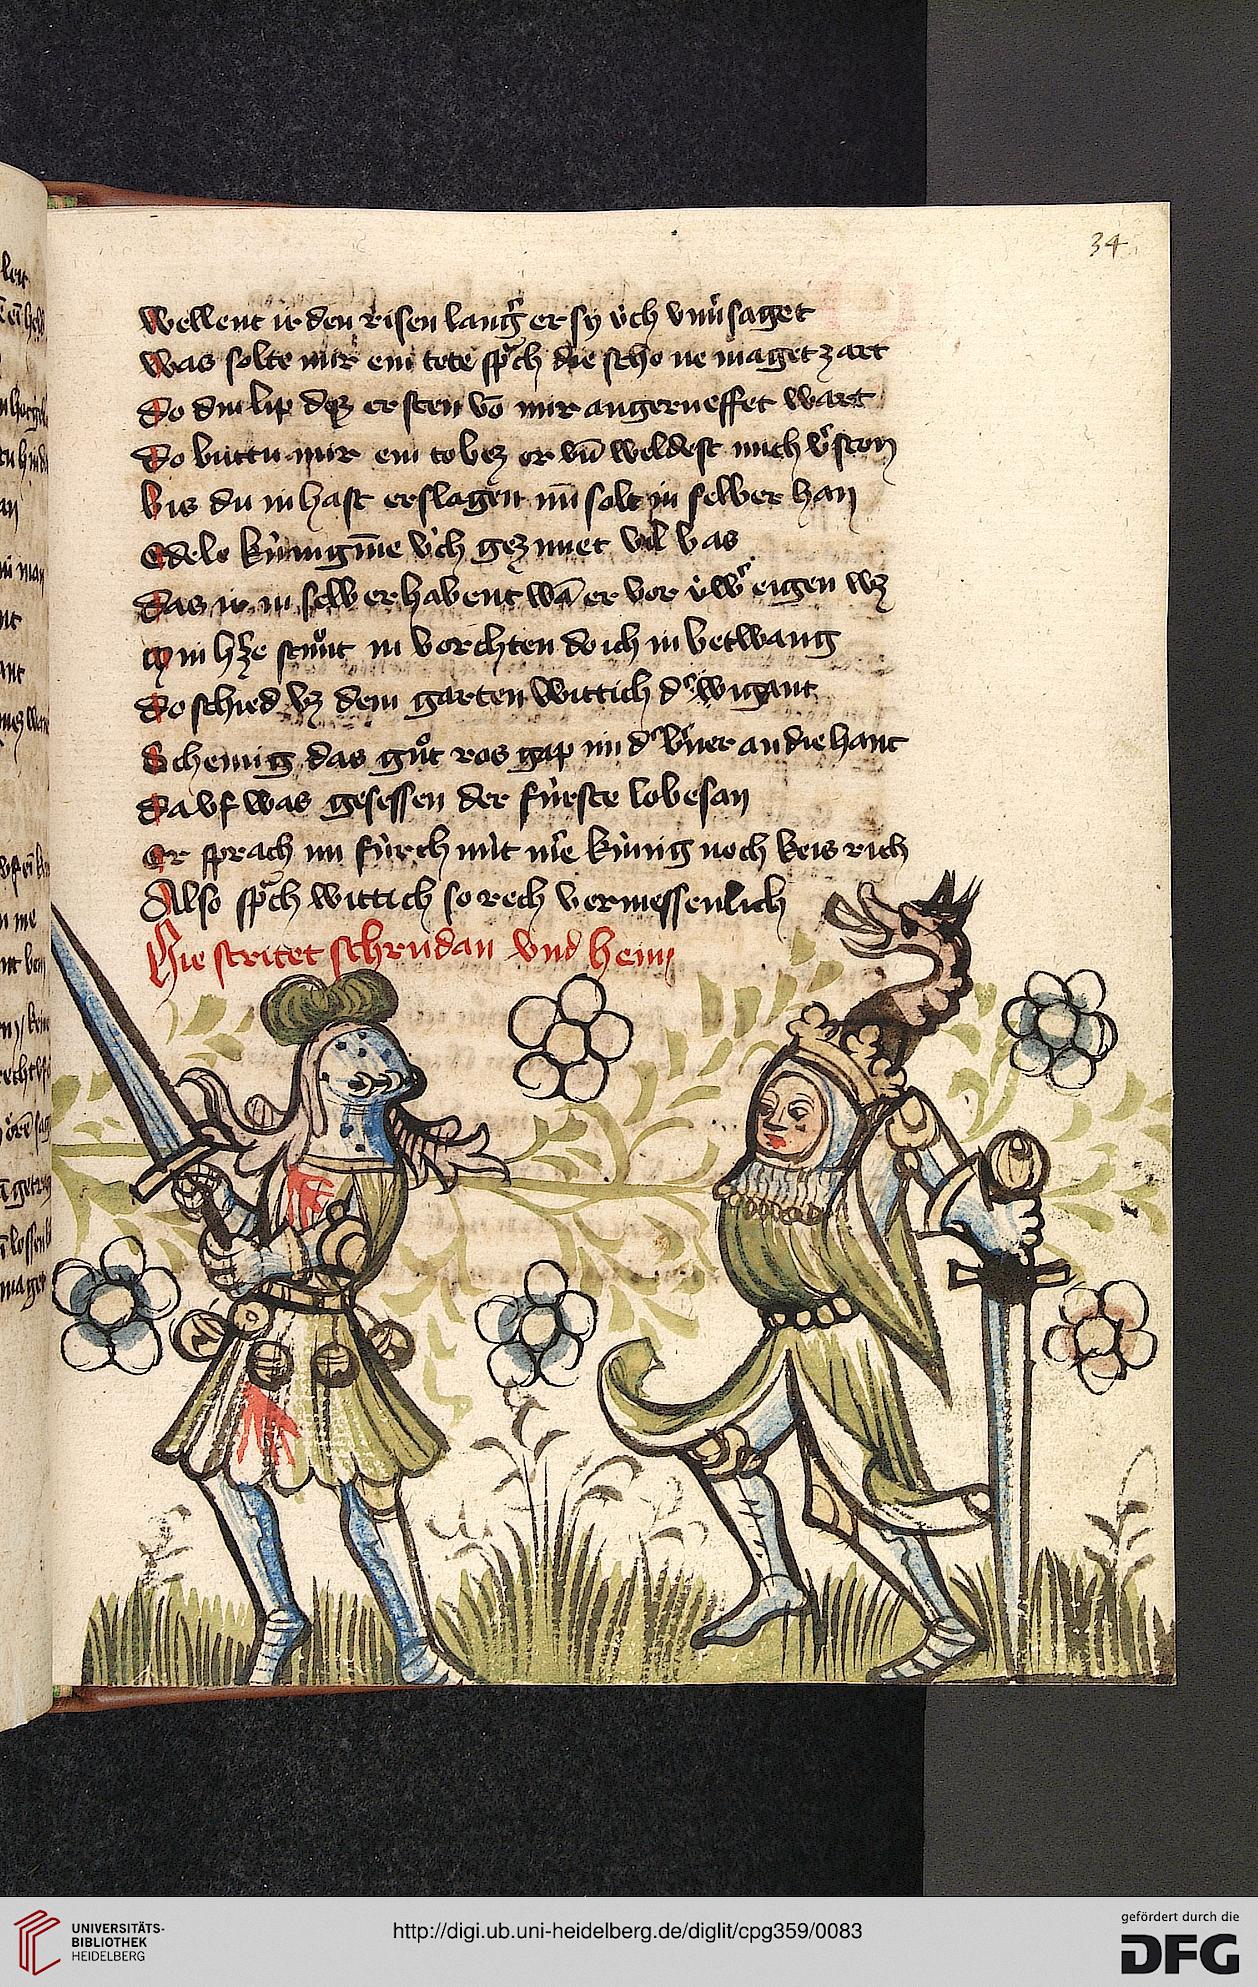 34
wellent ir den risen lang͛ er sy v̈ch vnu̍saget
was solte mir ein tote sp͛ch die scho ne maget zart
Do din lip dez ersten vō mir angerueffet wart
Do buttu mir ein tobez or vn̄ woldest mich
bis du in hast erslagen nu solt in selber han
Edele ku̍nigīne v̈ch gezimet vil bas
Das ir in selber habent wā er vor v̈w͛ eigen wz
Min h͛ze stuͦnt in vorchten do ich in betwang
Do schied vz dem garten wittich d͛ wigant
Scheming das guͦt ros gap im d͛ an die hant
Da vf was gesessen der fu̍rste lobesan
Er sprach nu fu̍rch nu̍t ku̍nig noch keis rich
Also sp͛ch wittich so rech vermessenlich
Hie stritet schrudan vnd heim
UNIVERSITÄTS-
BIBLIOTHEK
HEIDELBERG
http://digi.ub.uni-heidelberg.de/diglit/cpg359/0083
gefördert durch die
DFG